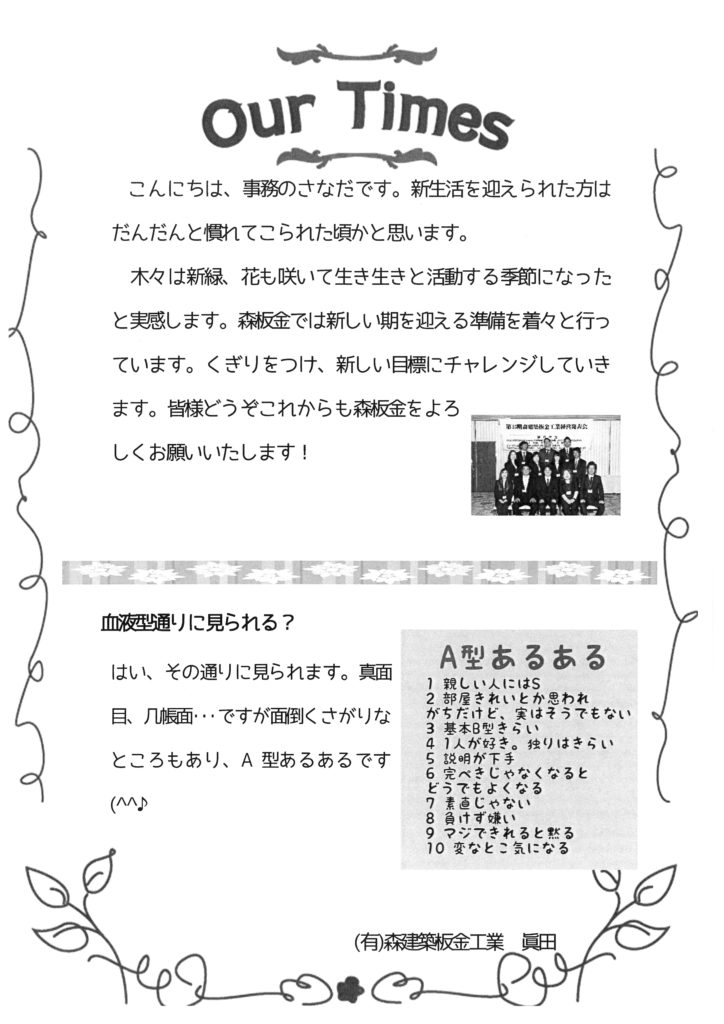 Our Times
こんにちは、事務のさなだです。新生活を迎えられた方は
だんだんと慣れてこられた頃かと思います。
木々は新緑、花も咲いて生き生きと活動する季節になった
と実感します。森板金では新しい期を迎える準備を着々と行っ
ています。くぎりをつけ、新しい目標にチャレンジしていき
ます。皆様どうぞこれからも森板金をよろ
しくお願いいたします！
血液型通りに見られる？
はい、その通りに見られます。真面
目、几帳面･･･ですが面倒くさがりな
ところもあり、A 型あるあるです
(^^♪
A型あるある
1 親しい人にはS
2 部屋きれいとか思われ
がちだけど、実はそうでもない
3 基本B型きらい
4 1人が好き。独りはきらい
5 説明が下手
6 完ぺきじゃなくなると
どうでもよくなる
7 素直じゃない
8 負けず嫌い
9 マジできれると黙る
10 変なとこ気になる
(有)森建築板金工業　眞田